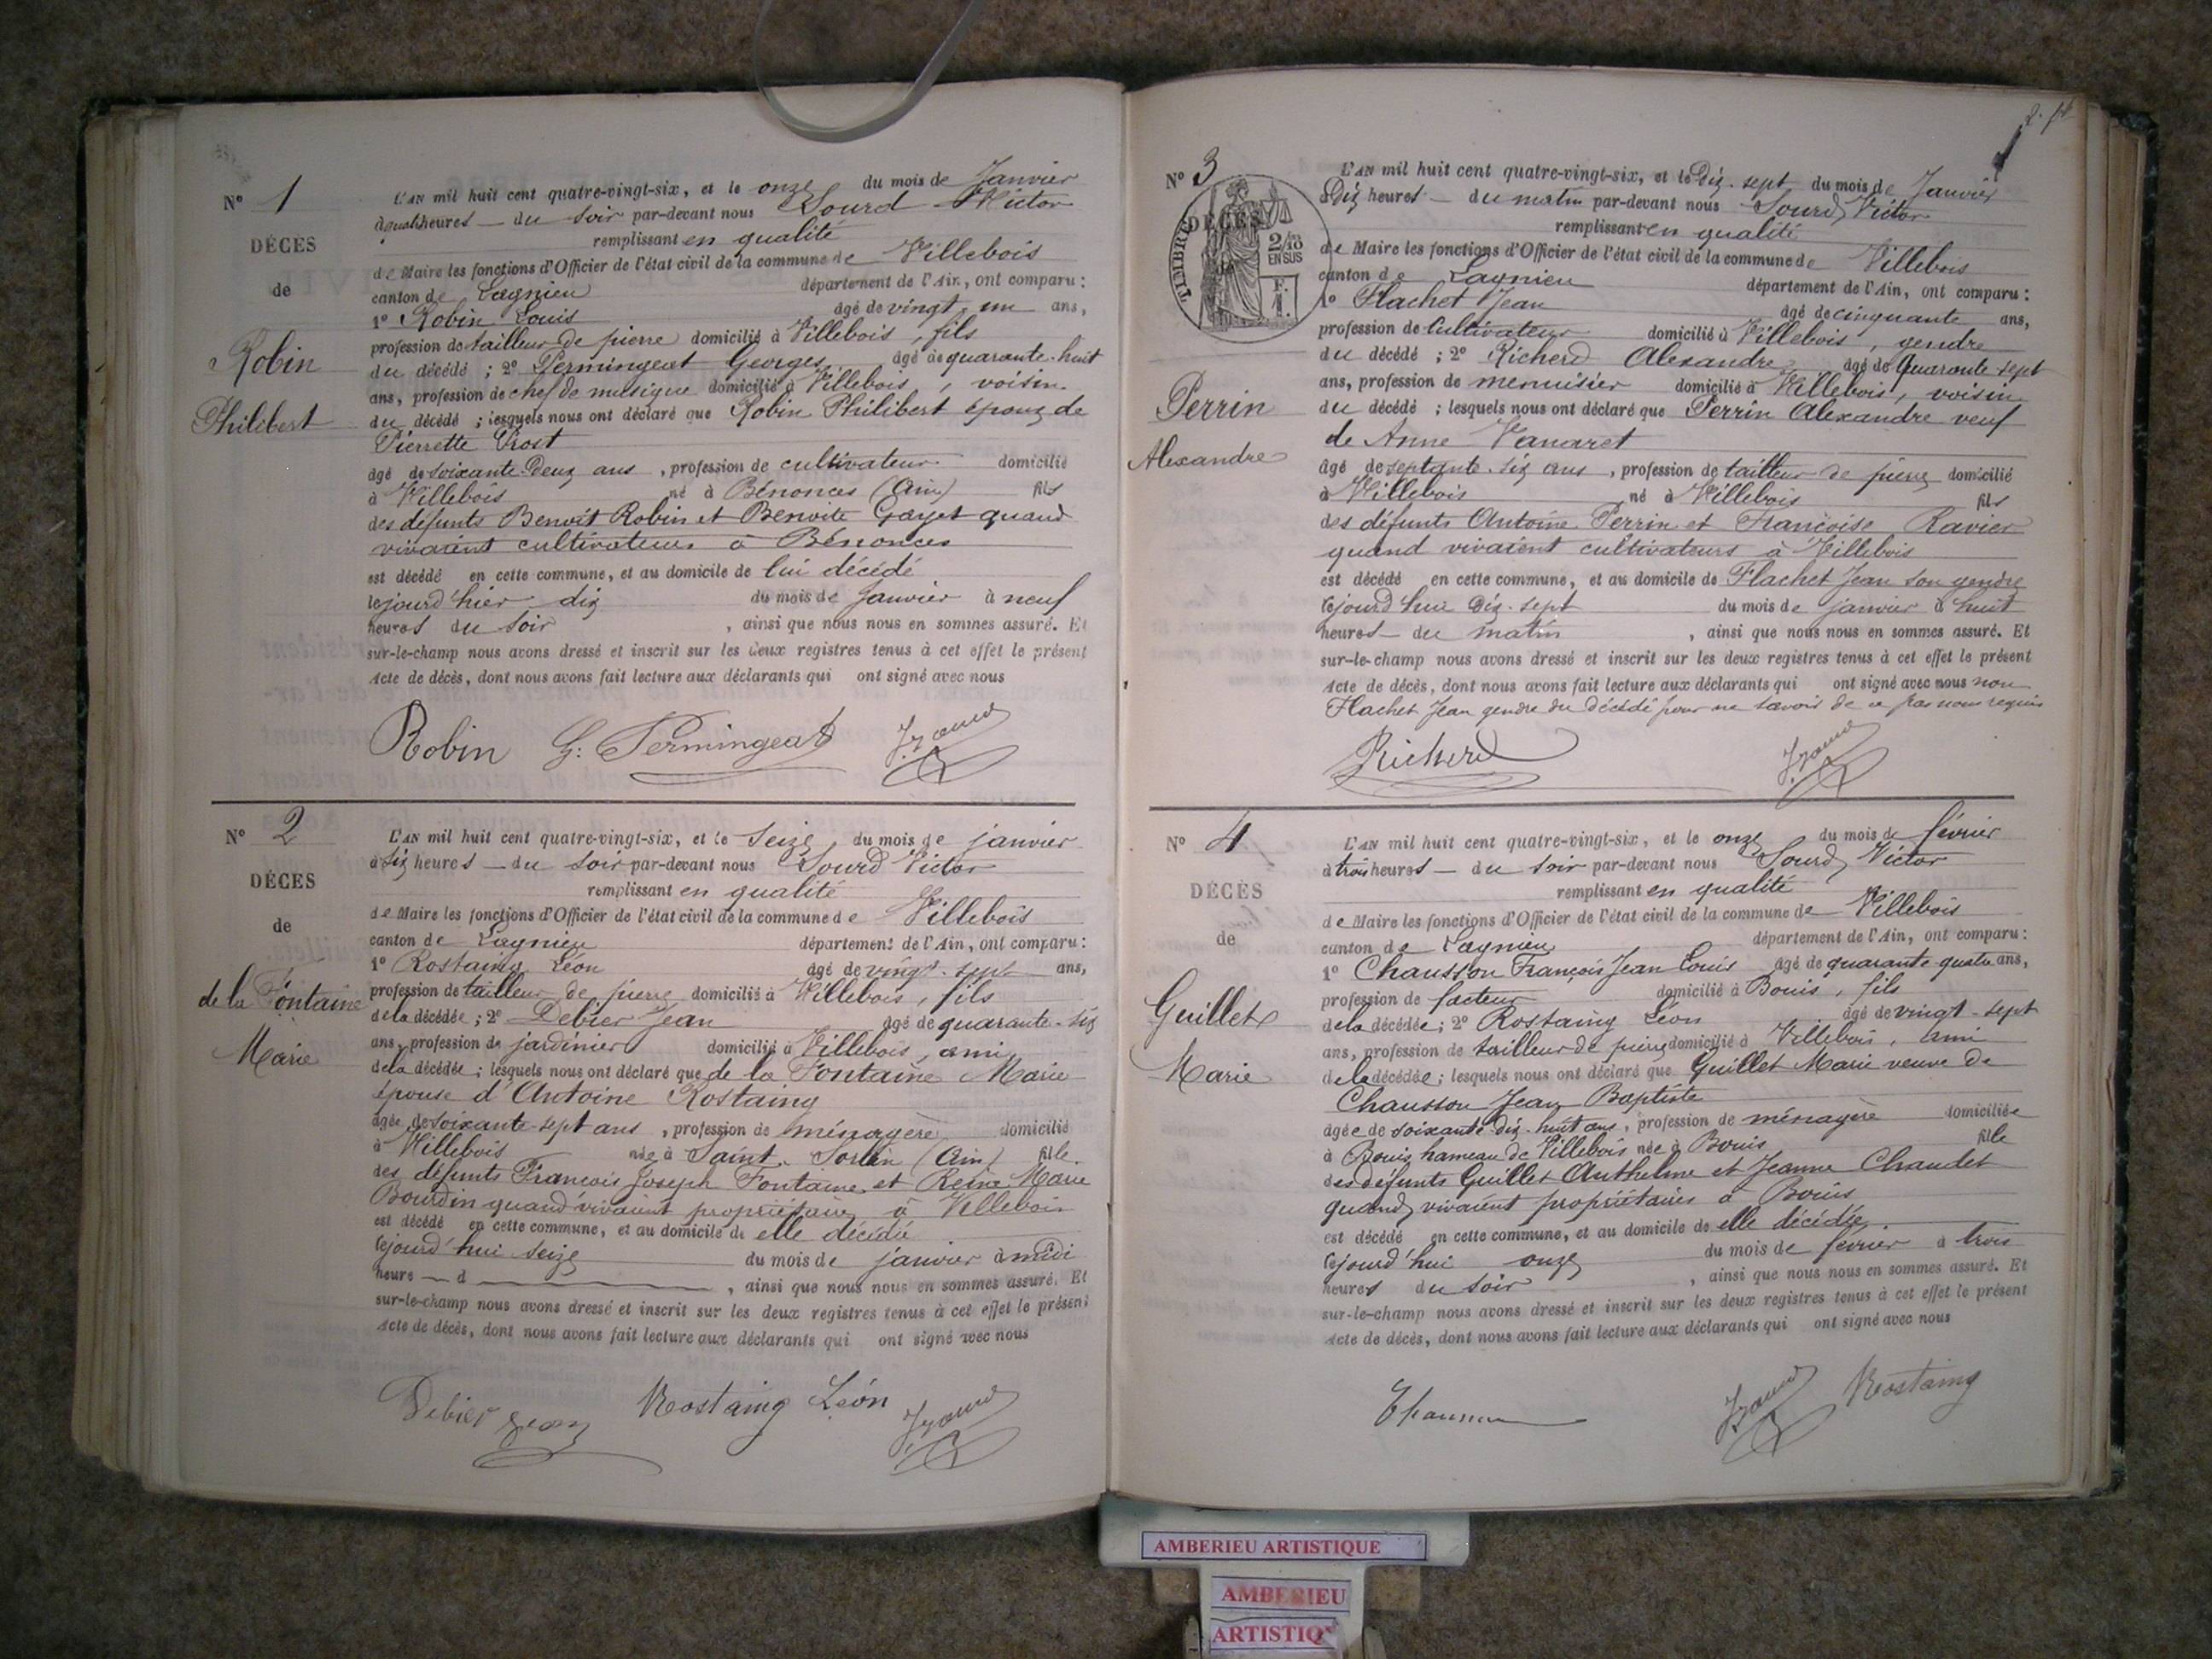 Nº 1
DÉCÈS
de
Robin
Philibert
L'AN mil huit cent quatre-vingt-six, et le onze du mois de Janvier
à quatre heures — du soir par-devant nous Sourd Victor
remplissant en qualité
de Maire les fonctions d'Officier de l'état civil de la commune de Villebois
canton de Lagnieu département de l'Ain, ont comparu :
1º Robin Louis âgé de vingt un ans,
profession de tailleur de pierre domicilié à Villebois, fils
du décédé ; 2º Permingeat Georges âgé de quarante-huit
ans, profession de chef de musique domicilié à Villebois, voisin
du décédé ; lesquels nous ont déclaré que Robin Philibert époux de
Pierrette Prost
âgé de soixante-deux ans, profession de cultivateur domicilié
à Villebois né à Bénonces (Ain) fils
des défunts Benoît Robin et Benoite Gayet quand
vivaient cultivateurs à Bénonces
est décédé en cette commune, et au domicile de lui décédé
le jourd'hier dix du mois de janvier à neuf
heures du soir, ainsi que nous nous en sommes assuré. Et
sur-le-champ nous avons dressé et inscrit sur les deux registres tenus à cet effet le présent
Acte de décès, dont nous avons fait lecture aux déclarants qui ont signé avec nous
Robin G. Permingeat
Nº 2
DÉCES
de
de la Fontaine
Marie
L'AN mil huit cent quatre-vingt-six, et le seize du mois de janvier
à six heures — du soir par-devant nous Sourd Victor
remplissant en qualité
de Maire les fonctions d'Officier de l'état civil de la commune de Villebois
canton de Lagnieu département de l'Ain, ont comparu :
1º Rostaing Léon âgé de vingt-sept ans,
profession de tailleur de pierre domicilié à Villebois, fils
de la décédée ; 2º Debier Jean âgé de quarante-six
ans, profession de jardinier domicilié à Villebois, ami
de la décédée ; lesquels nous ont déclaré que de la Fontaine Marie
épouse d'Antoine Rostaing
âgée de soixante-sept ans, profession de ménagère domicilié
à Villebois née à Saint-Sorlin (Ain) fille
des défunts François Joseph Fontaine et Reine Marie
Bourdin quand vivaient propriétaires à Villebois
est décédé en cette commune, et au domicile de elle décédée
le jourd'hui seize du mois de janvier à midi
heure — d —, ainsi que nous nous en sommes assuré. Et
sur-le-champ nous avons dressé et inscrit sur les deux registres tenus à cet effet le présent
Acte de décès, dont nous avons fait lecture aux déclarants qui ont signé avec nous
Debier Jean Rostaing Léon
Nº 3
DÉCÈS
TIMBRE
2/10
EN SUS
F.
1.
Perrin
Alexandre
L'AN mil huit cent quatre-vingt-six, et le Dix-sept du mois de Janvier
à Dix heures — du matin par-devant nous Sourd Victor
remplissant en qualité
de Maire les fonctions d'Officier de l'état civil de la commune de Villebois
canton de Lagnieu département de l'Ain, ont comparu :
1º Flachet Jean âgé de cinquante ans,
profession de Cultivateur domicilié à Villebois, gendre
du décédé ; 2º Richerd Alexandre âgé de Quarante-sept
ans, profession de menuisier domicilié à Villebois, voisin
du décédé ; lesquels nous ont déclaré que Perrin Alexandre veuf
de Anne Vanaret
âgé de septante-six ans, profession de tailleur de pierre domicilié
à Villebois né à Villebois fils
des défunts Antoine Perrin et Françoise Ravier
quand vivaient cultivateurs à Villebois
est décédé en cette commune, et au domicile de Flachet Jean son gendre
le jourd'hui dix-sept du mois de janvier à huit
heures — du matin, ainsi que nous nous en sommes assuré. Et
sur-le-champ nous avons dressé et inscrit sur les deux registres tenus à cet effet le présent
Acte de décès, dont nous avons fait lecture aux déclarants qui ont signé avec nous non
Flachet Jean gendre du décédé pour ne savoir de ce par nous requis
Richerd
Nº 4
DÉCÈS
de
Guillet
Marie
L'AN mil huit cent quatre-vingt-six, et le onze du mois de février
à trois heures — du soir par-devant nous Sourd Victor
remplissant en qualité
de Maire les fonctions d'Officier de l'état civil de la commune de Villebois
canton de Lagnieu département de l'Ain, ont comparu :
1º Chausson François Jean Louis âgé de quarante-quatre ans,
profession de facteur domicilié à Bouis, fils
de la décédée ; 2º Rostaing Léon âgé de vingt-sept
ans, profession de tailleur de pierre domicilié à Villebois, ami
de la décédée ; lesquels nous ont déclaré que Guillet Marie veuve de
Chausson Jean Baptiste
âgée de soixante-dix-huit ans, profession de ménagère domiciliée
à Bouis hameau de Villebois née à Bouis fille
des défunts Guillet Anthelme et Jeanne Chaudet
quand vivaient propriétaires à Bouis
est décédé en cette commune, et au domicile de elle décédée
le jourd'hui onze du mois de février à trois
heures du soir, ainsi que nous nous en sommes assuré. Et
sur-le-champ nous avons dressé et inscrit sur les deux registres tenus à cet effet le présent
Acte de décès, dont nous avons fait lecture aux déclarants qui ont signé avec nous
Rostaing
AMBERIEU ARTISTIQUE
AMBERIEU
ARTISTIQ